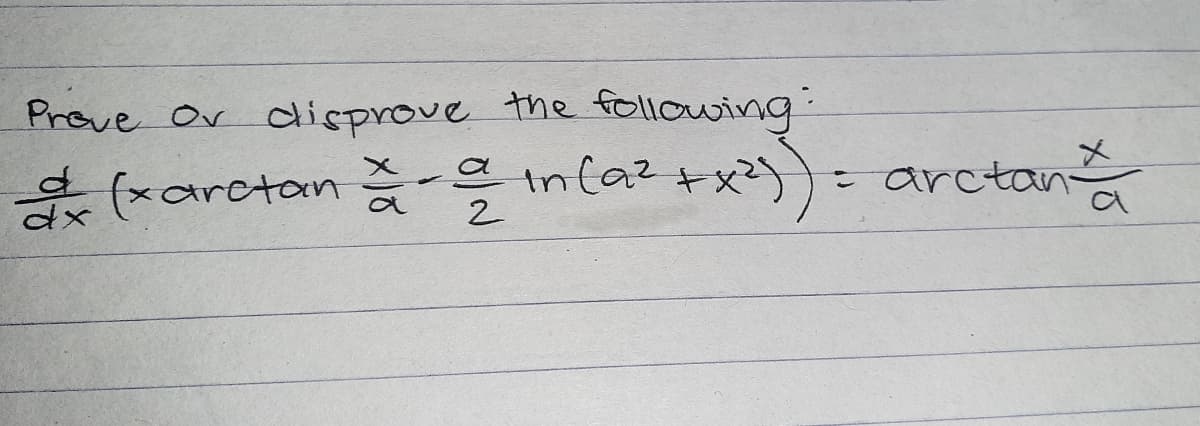 Prove or disprove the following:
d/dx (x arctan x/a - a/2 ln(a² + x²)) = arctan x/a